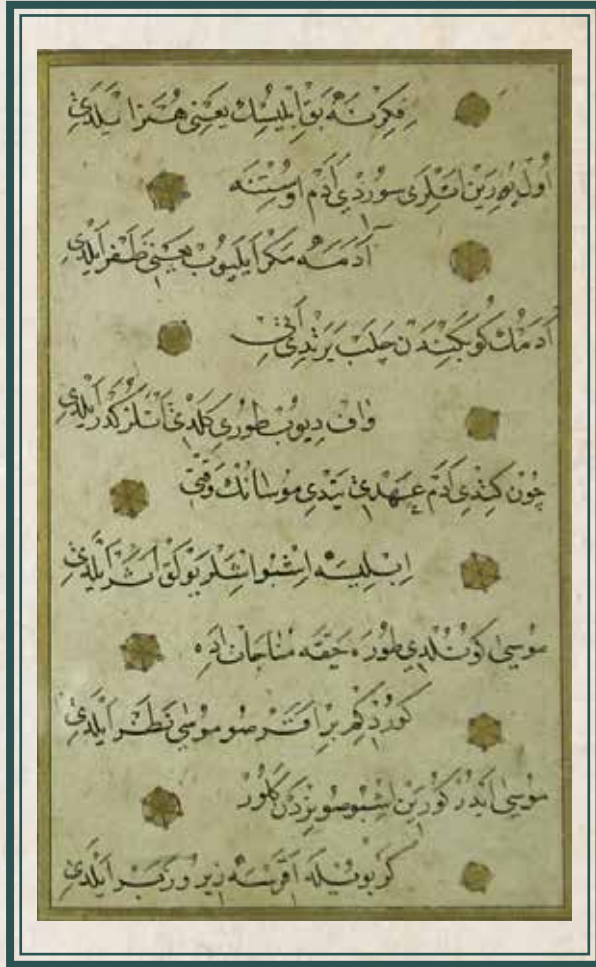 فكرنه بق ابليسك يعنى هنر ايلدى
اول يه رين اتلرى سوردى آدم اوستنه
آدمه مكر ايليوب يعنى ظفر ايلدى
آدمك كوبكندن چلب يرتدى آنى
قاف ديوب طورى كلدى اتلر كدر ايلدى
چون كتدى آدم عهدى يتدى موسانك وقتى
ابليسه اشبو اشلر يوكن اثر ايلدى
موسى كوندلدى طوره حقه مناجات اده
كوردكم بر اقر صو موسى نظر ايلدى
موسى ايدر كورين اشبو صو نردن كلور
كر بويله اقرسه زير و زبر ايلدى